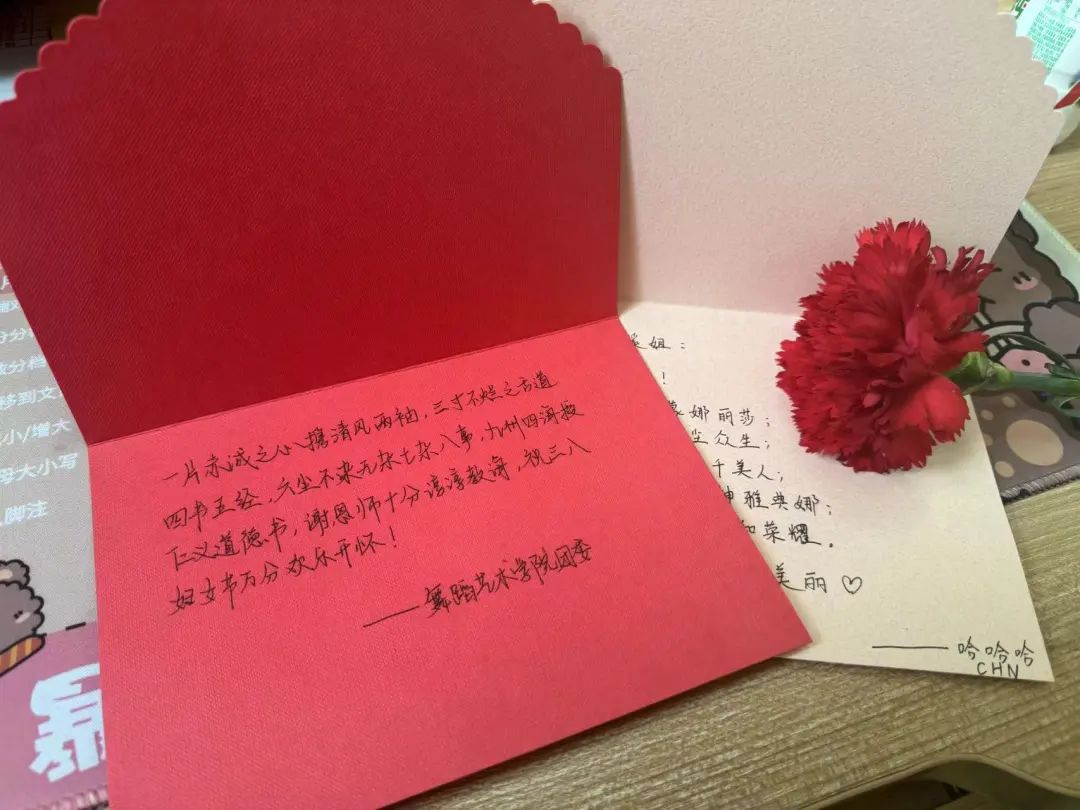 一片赤诚之心携清风两袖，三寸不烂之舌道
四书五经，六尘不染无杂七杂八事，九州四海授
仁义道德书，谢恩师十分谆谆教诲，祝三八
妇女节万分欢乐开怀！
——舞蹈艺术学院团委
姐：
！
蒙娜丽莎；
尘众生；
千美人；
神雅典娜；
和荣耀。
美丽♡
——哈哈哈
CHN
分档
移到文
小/增大
母大小写
脚注